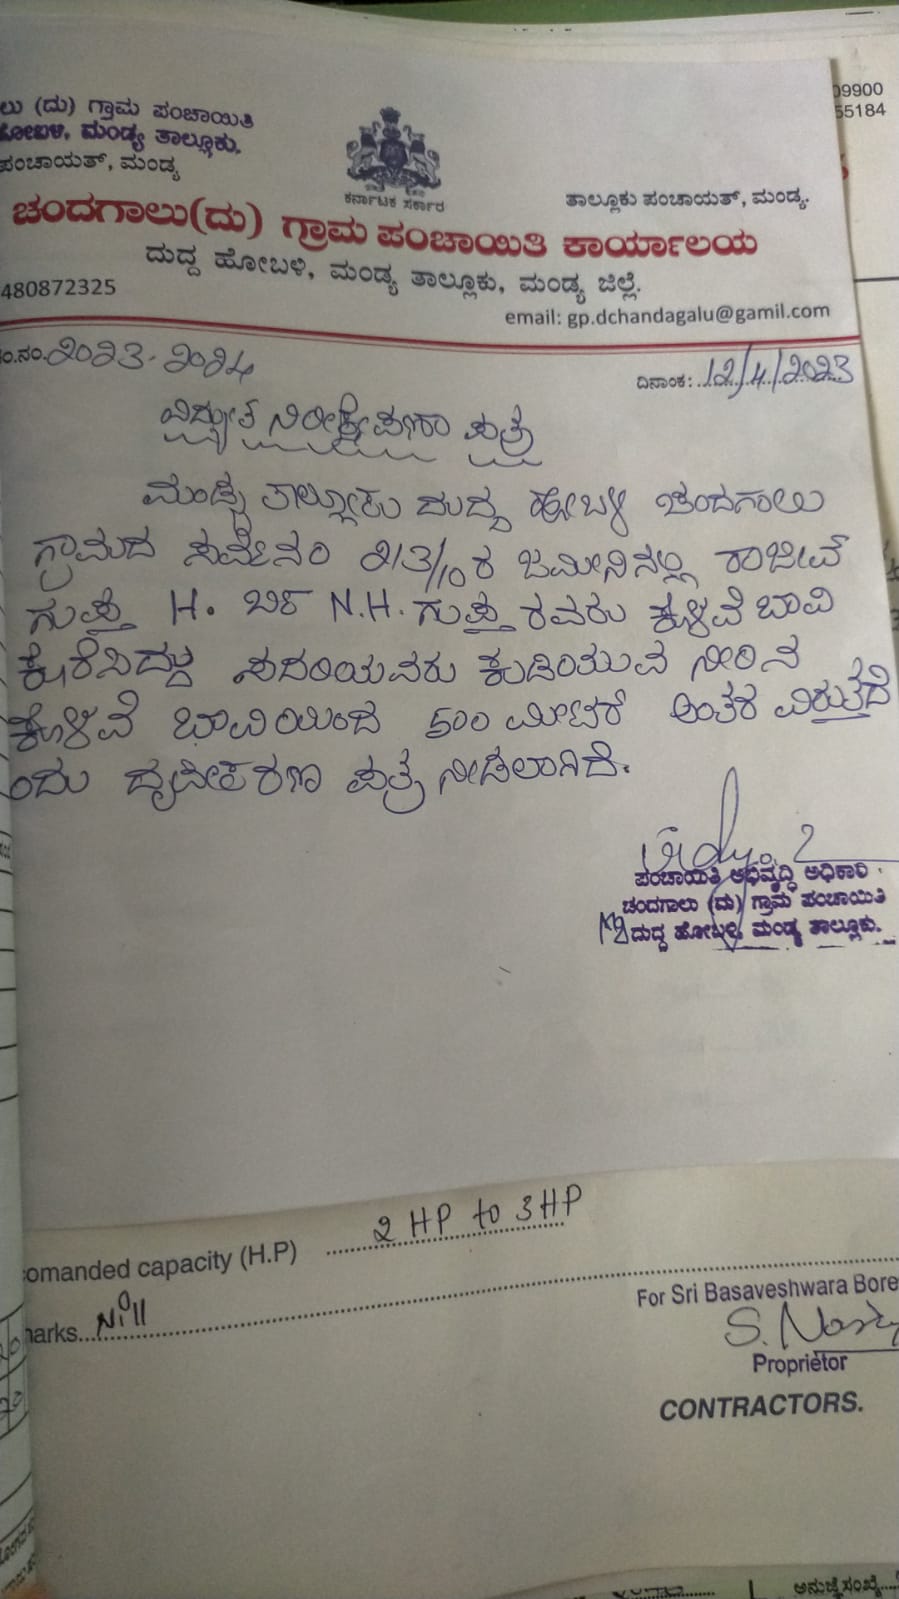 09900
55184
ಲು (ದು) ಗ್ರಾಮ ಪಂಚಾಯಿತಿ
ಹೋಬಳಿ, ಮಂಡ್ಯ ತಾಲ್ಲೂಕು.
ಪಂಚಾಯತ್, ಮಂಡ್ಯ
ಕರ್ನಾಟಕ ಸರ್ಕಾರ
ತಾಲ್ಲೂಕು ಪಂಚಾಯತ್, ಮಂಡ್ಯ.
ಚಂದಗಾಲು(ದು) ಗ್ರಾಮ ಪಂಚಾಯಿತಿ ಕಾರ್ಯಾಲಯ
ದುದ್ದ ಹೋಬಳಿ, ಮಂಡ್ಯ ತಾಲ್ಲೂಕು, ಮಂಡ್ಯ ಜಿಲ್ಲೆ.
480872325
email: gp.dchandagalu@gamil.com
ಸಂ.ನಂ. 2023-2024
ದಿನಾಂಕ: 12/4/2023
ಪತ್ರ
ಮಂಡ್ಯ ತಾಲ್ಲೂಕು ದುದ್ದ ಹೋಬಳಿ ಚಂದಗಾಲು
ಗ್ರಾಮದ ಸರ್ವೆನಂ 213/10 ರ ಜಮೀನಿನಲ್ಲಿ ರಾಜೀವ್
ಗುಪ್ತ H. ಬಿನ್ N.H. ಗುಪ್ತ ರವರು ಕೊಳವೆ ಬಾವಿ
ಕೊರೆಸಿದ್ದು ಸದರಿಯವರು ಕುಡಿಯುವ ನೀರಿನ
ಕೊಳವೆ ಬಾವಿಯಿಂದ 500 ಮೀಟರ್ ಅಂತರ ವಿರುತ್ತದೆ
ಎಂದು ದೃಢೀಕರಣ ಪತ್ರ ನೀಡಲಾಗಿದೆ.
ಪಂಚಾಯಿತಿ ಅಭಿವೃದ್ಧಿ ಅಧಿಕಾರಿ
ಚಂದಗಾಲು (ದು) ಗ್ರಾಮ ಪಂಚಾಯಿತಿ
ದುದ್ದ ಹೋಬಳಿ, ಮಂಡ್ಯ ತಾಲ್ಲೂಕು.
comanded capacity (H.P) 2 HP to 3 HP
marks... Nill
For Sri Basaveshwara Bore
Proprietor
CONTRACTORS.
ಅನುಜ್ಞೆ ಸಂಖ್ಯೆ.....